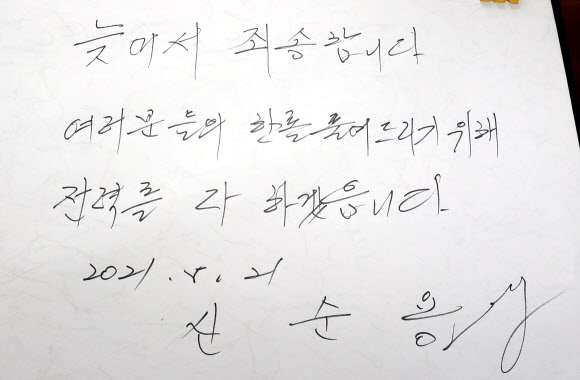 늦어서 죄송합니다
여러분들의 한을 풀어드리기 위해
전력을 다 하겠습니다
2021. 5. 21
신순용